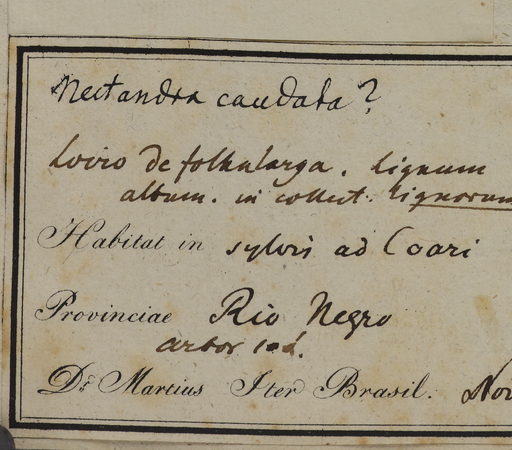 Nectandra caudata?
Loiro de folha larga. lignum
album. in collect. lignorum
Habitat in sylvis ad Coari
Provinciae Rio Negro
arbor
Dr. Martius Iter Brasil. Nov